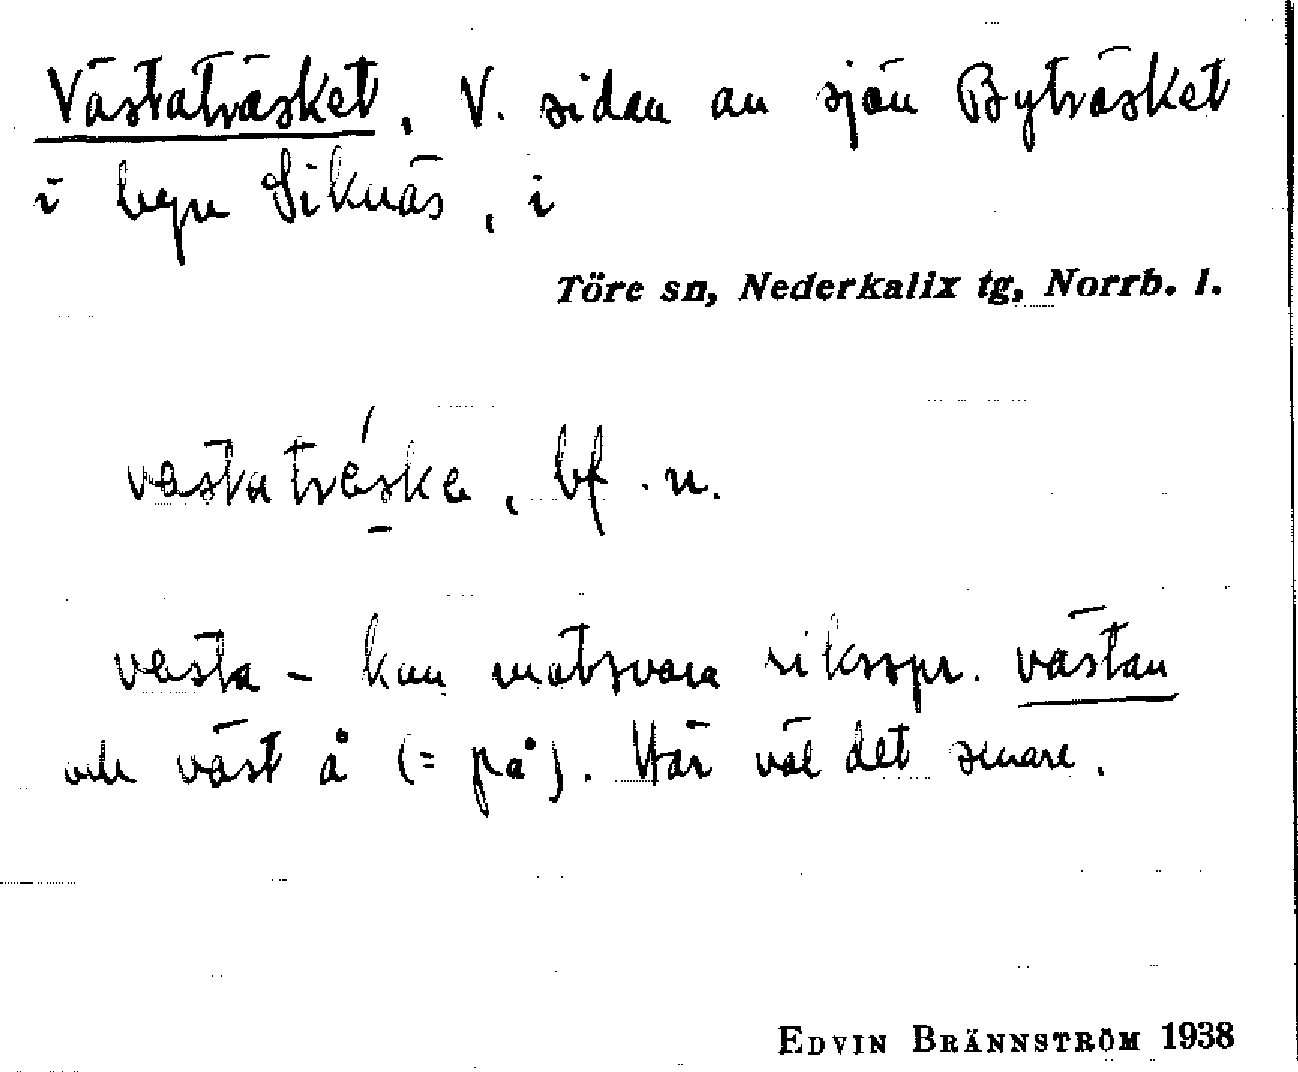 Västaträsket, V. sidan au sjön Byträsket
i byn Siknäs, i
Töre sn, Nederkalix tg, Norrb. l.
vestatréske, bf. n.
vesta - kan motsvara riksspr. västan
och väst å (= på). Här väl det senare.
EDVIN BRÄNNSTRÖM 1938